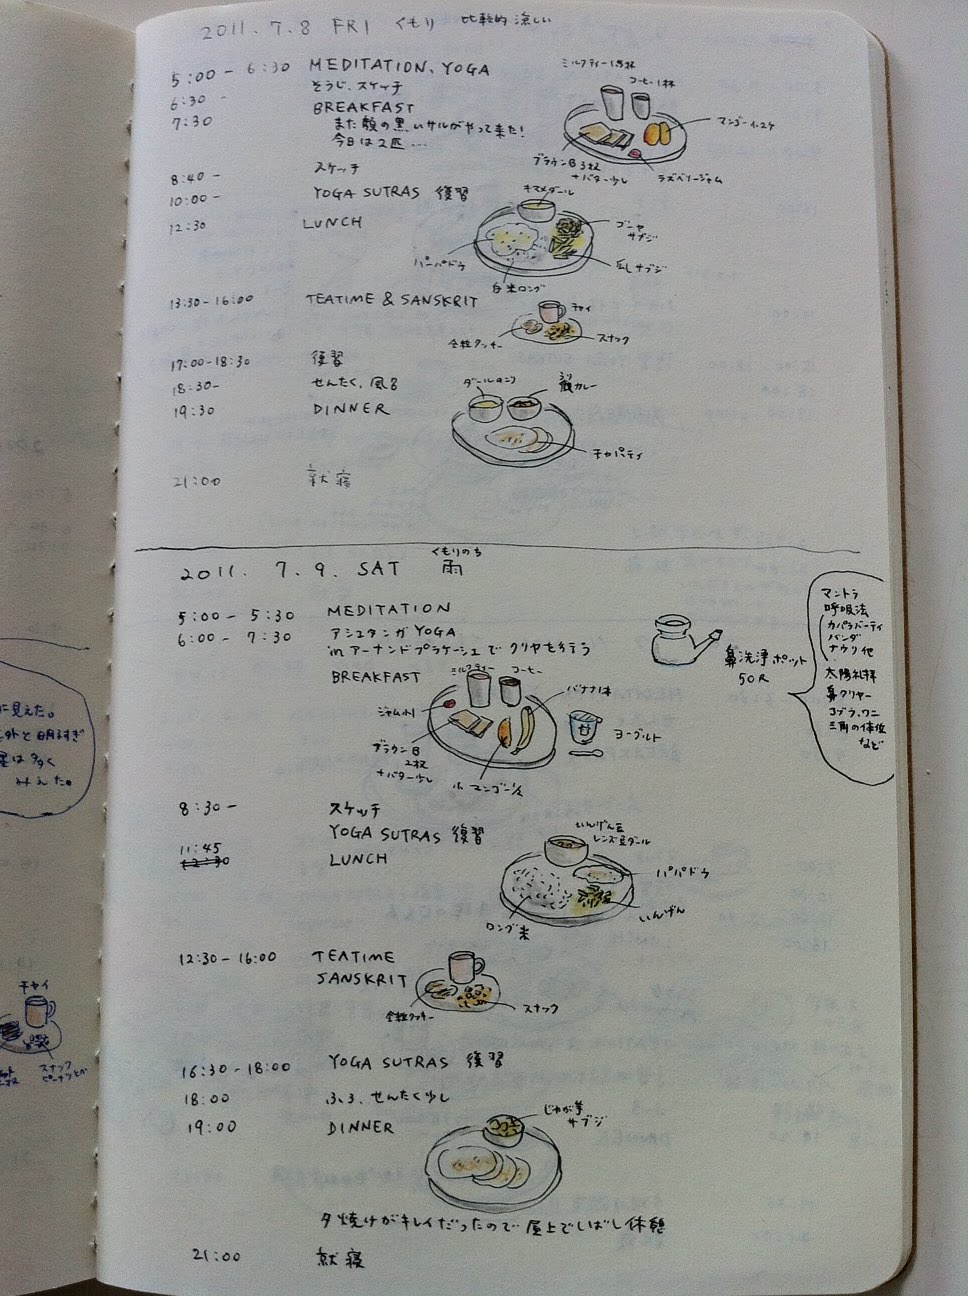 2011. 7. 8 FRI くもり 比較的 涼しい
5:00 - 6:30 MEDITATION、YOGA
6:30 - そうじ、スケッチ
7:30 BREAKFAST
また顔の黒いサルがやって来た!
今日は2匹…
ミルクティー1杯
コーヒー1杯
マンゴー
ブラウンB 3枚
+バター少し
ラズベリージャム
8:40 - スケッチ
10:00 - YOGA SUTRAS 復習
12:30 LUNCH
サブジ
サブジ
パーパドゥ
白米ロング
13:30-16:00 TEATIME & SANSKRIT
チャイ
全粒クッキー
スナック
17:00-18:30 復習
18:30- せんたく、風呂
19:30 DINNER
ダールのこり
カレー
チャパティ
21:00 就寝
2011. 7. 9. SAT くもりのち 雨
5:00 - 5:30 MEDITATION
6:00 - 7:30 アシュタンガ YOGA
in アーナンドプラケーシュで クリヤを行う
鼻洗浄ポット
50R
マントラ
呼吸法
カパラバーティ
バンダ
ナウリ他
太陽礼拝
鼻クリヤー
コブラ、ワニ
三角の体位
など
BREAKFAST
ミルクティー
コーヒー
バナナ1本
ジャム小1
ヨーグルト
ブラウンB
2枚
+バター少し
小マンゴー1/2
8:30 - スケッチ
YOGA SUTRAS 復習
11:45
12:30 LUNCH
いんげん豆
レンズ豆ダール
パパドゥ
いんげん
ロング米
12:30 - 16:00 TEATIME
SANSKRIT
全粒クッキー
スナック
16:30 - 18:00 YOGA SUTRAS 復習
18:00 ふろ、せんたく少し
19:00 DINNER
じゃが芋
サブジ
夕焼けがキレイだったので 屋上でしばし休憩
21:00 就寝
に見えた。
外と明すぎ
星は多く
みえた。
チャイ
スナック
ピーナツとか